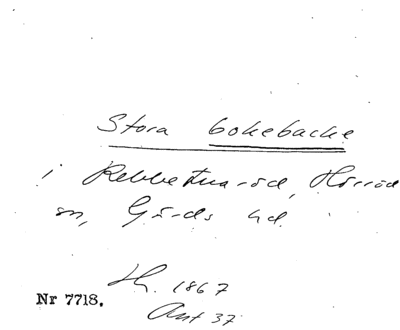 Stora bokebacke
i Rebbetuaröd, Hörröd
sn, Gärds hd.
H. 1867
Ant 37
Nr 7718.